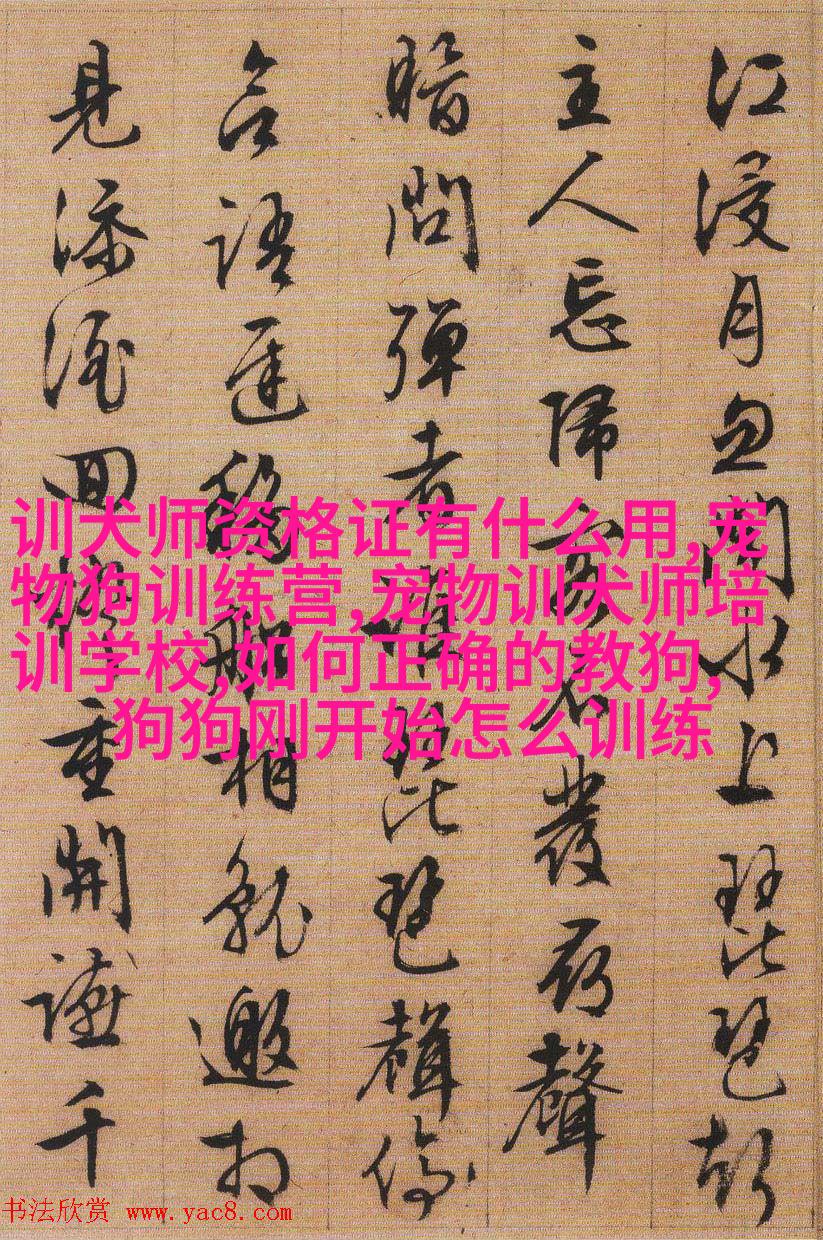 江浸月忽聞水上琵琶聲
主人忘歸客不發尋聲
暗問彈者誰琵琶聲停
語遲移船相就邀相
見添酒回燈重開讌千
训犬师资格证有什么用,宠
物狗训练营,宠物训犬师培
训学校,如何正确的教狗,
狗狗刚开始怎么训练
书法欣赏 www.yac8.com